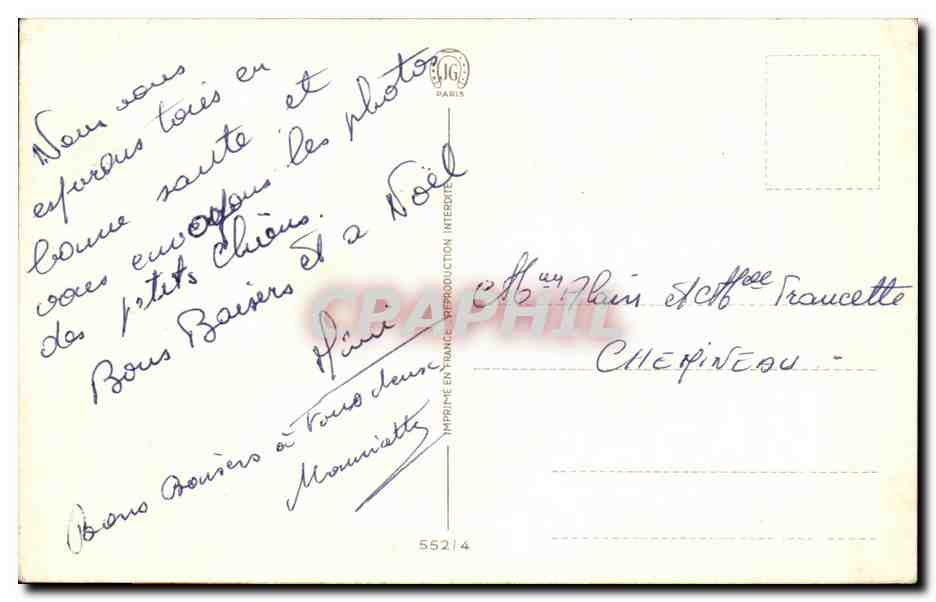 Nous vous
espérons tous en
bonne santé et
vous envoyons les photos
des p'tits chiens.
Bons Baisers et à Noël
Bons Baisers à Vous deux
Mauricette
JG
PARIS
IMPRIMÉ EN FRANCE REPRODUCTION INTERDITE
552/4
CPAPHIL
Alain et Francette
CHEMINEAU -